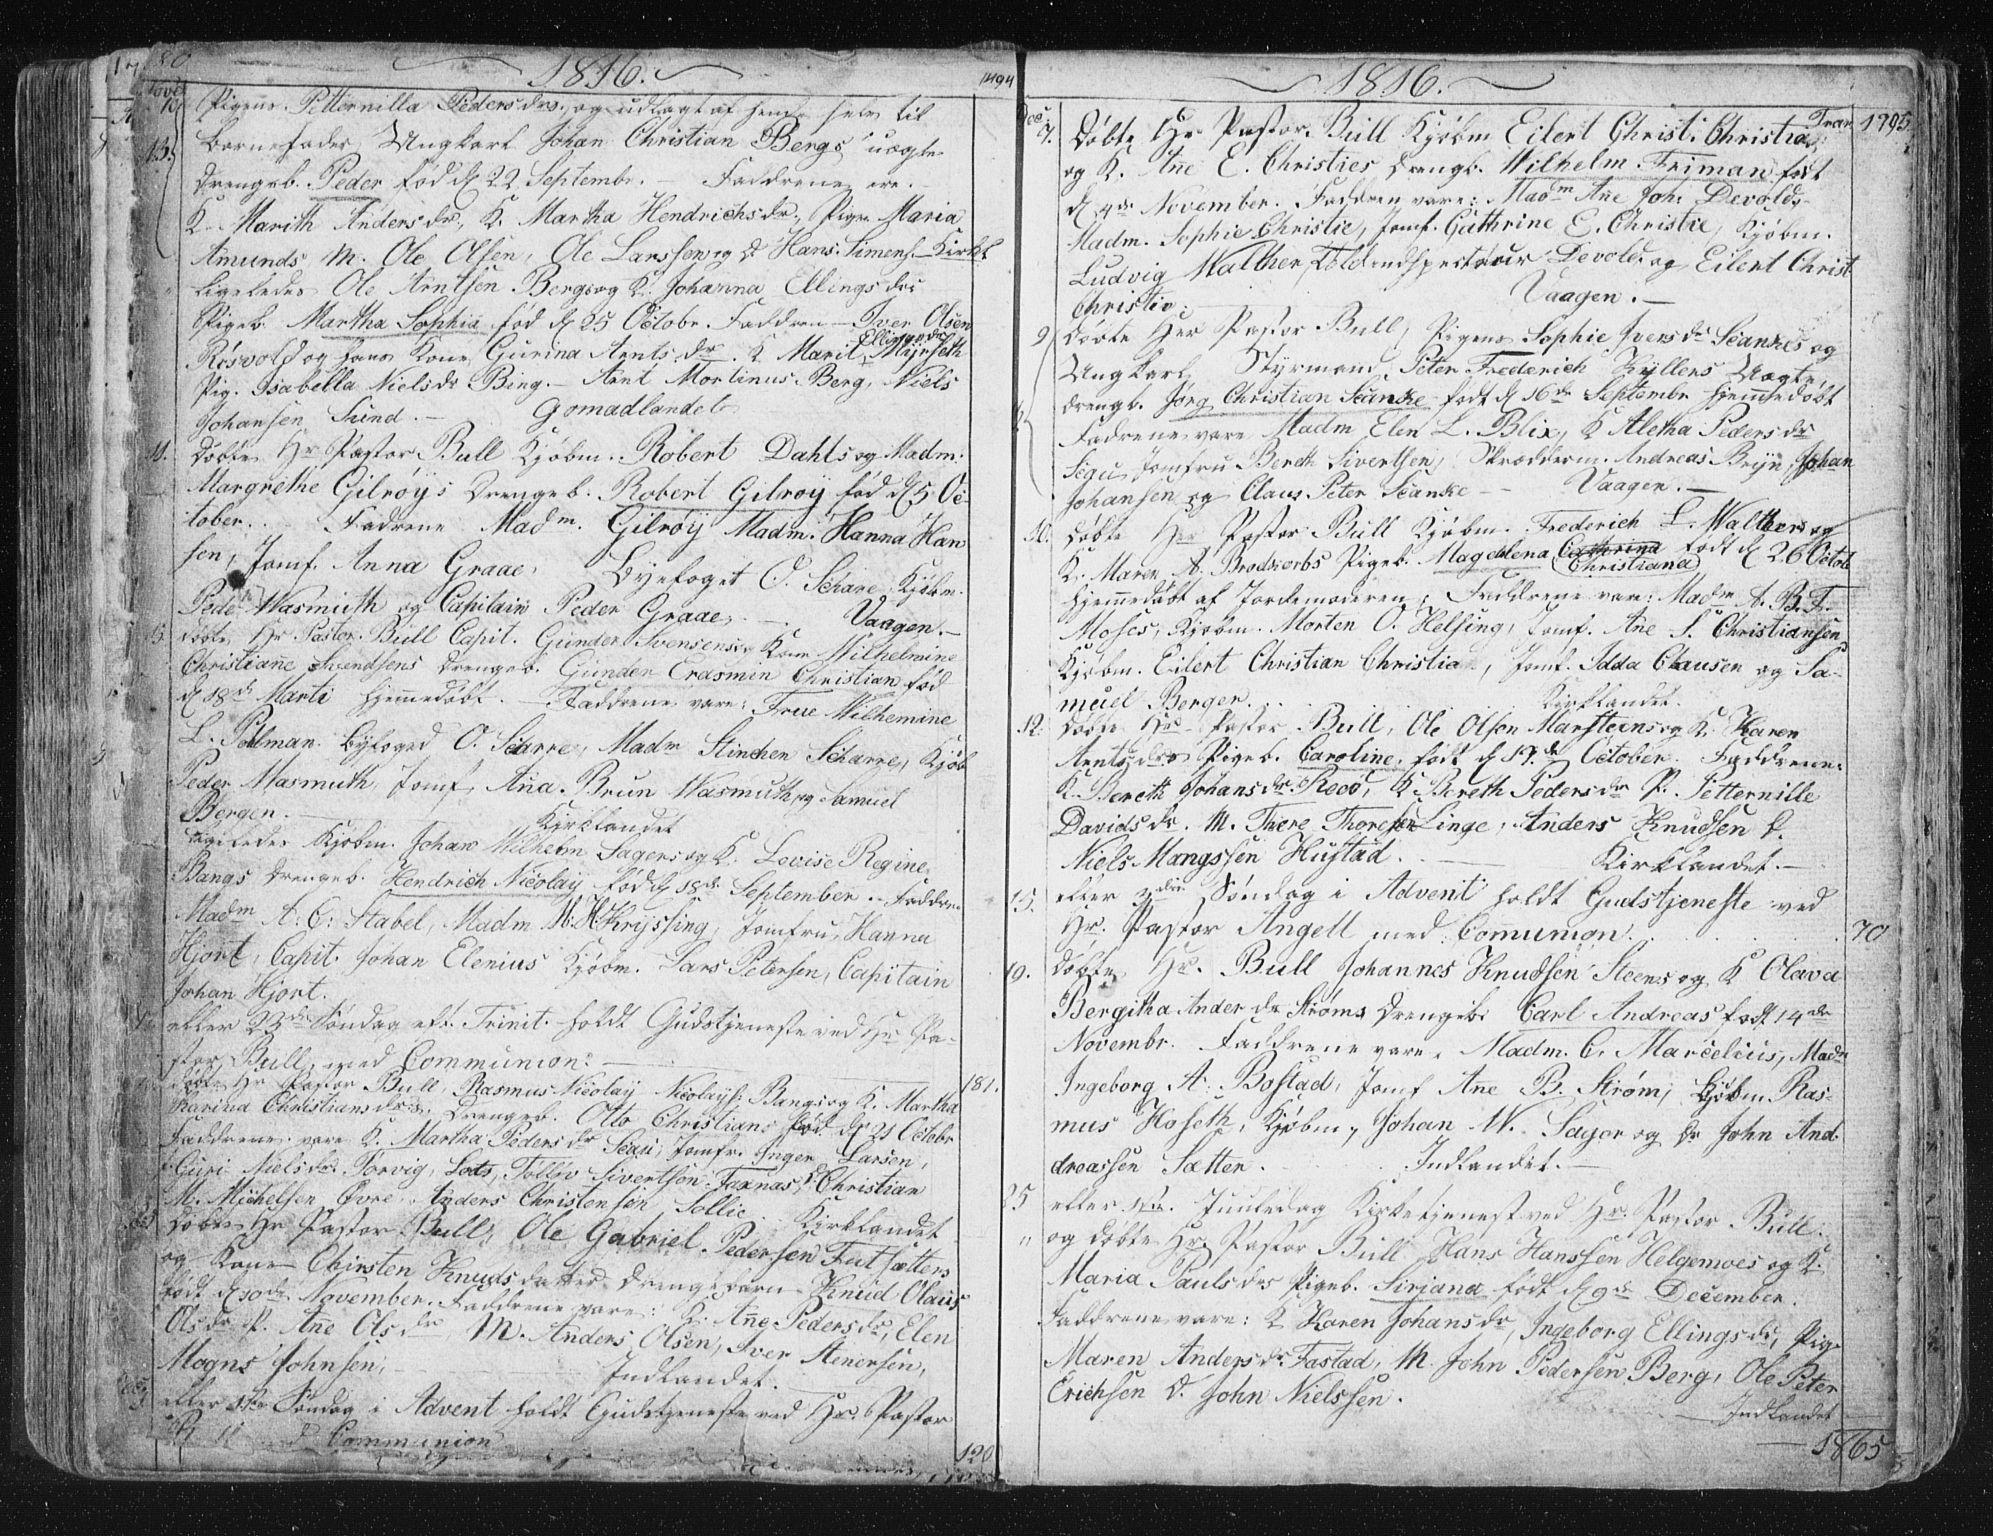 180
1816.
1494
Novb.
10 Pigens Petternilla Pedersdrs. og udlagt af hende selv til
13. Barnefader Ungkarl Johan Christian Bergs uægte
Drengeb. Peder fød d 22 Septembr. — Faddrene ere.
K. Marith Andersdr., K. Martha Hendrichsdr., Pigen Maria
Amunds M. Ole Olsen, Ole Larssen og D Hans Simens. — Kirkl.
ligeledes Ole Arntsen Bergs og K. Johanna Ellingsdrs
Pigeb. Martha Sophia fød d 25 Octobr. Faddren — Iver Olsen
Røsvold og hans Kone Gurina Arntsdr. K Marit Ellingsdr Myrseth
Pig. Isabella Nielsdr Bing. — Arnt Mortinus Berg, Niels
Johansen Sund. — Gomadlandet
Døbte Hr Pastor Bull Kjøbm. Robert Dahls og Madm.
Margrethe Gilrøys Drengeb. Robert Gilroy fød d 5 Oc-
tober. Fadrene Madm. Gilrøy Madm. Hanna Han
sen, Jomf. Anna Graae, Byefoget O. Scharre, Kjøbm.
Peder Wasmuth og Capitain Peder Graae. — Vaagen. —
døbte Hr Pastor Bull Capit. Gunder Svensens og Kone Wilhelmine
Christiane Svendsens Drengeb. Gunder Erasmin Christian fød
d 18de Marti hjemmedøbt. — Faddrene vare: Frue Wilhemine
L. Pellman Byfoged O. Scharre, Madm Stinchen Scharre, Kjøb
Peder Wasmuth, Jomf. Anna Brun Wasmuth og Samuel
Bergen. — Kirklandet
ligeledes Kjøbm. Johan Wilhelm Sagers og K. Lovise Regine
Bangs Drengeb. Hendrich Nicolay fød d 18de September. — Faddren
Madm A. C. Stabel, Madm M. H. Kryssing, Jomfru Hanna
Hjort, Capit. Johan Elenius Kjøbm. Lars Petersen, Capitain
Johan Hjort.
eller 23de Søndag eft. Trinit. holdt Gudstjeneste ved Hr Pa-
stor Bull, med Communion: 181.
døbte Hr Pastor Bull, Rasmus Nicolay Nicolays: Bangs og K. Martha
Karina Christiansdrs. Drengeb. Otto Christians fød d 21 Octobr
Faddrene vare K. Martha Pedersdr Seari, Jomfr. Inger Larsen,
Guri Nielsdr. Torvig, Lods, Tollev Sivertsen Faxnas, Christian
M. Michelsen Øvre Anders Christensen Sollie. Kirklandet
Døbte Hr Pastor Bull, Ole Gabriel Pedersen Futsættens
og Kone Chirsten Knudsdatter Drengebarn Knud Olaus
født d 10de November. Faddrene vare: K. Ane Pedersdr, Elen
Olsdr P. Ane Olsdr M. Anders Olsen, Iver Stenersen,
Mogns Johnsen, — Indlandet.
eller 1ste Søndag i Advent holdt Gudstjeneste ved Hr: Pastor
Bull Communion 120
1816.
Dec: Tran 1795
7. Døbte Hr Pastor Bull Kjøbm Eilert Christ: Christies
og K. Ane E. Christies Drengb. Wilhelm Friman født
d 4de November. Faddren vare: Madm Ane Joh: Devolds
Madm. Sophie Christie, Jomf. Cathrine E. Christie, Kjøbm.
Ludvig Walther, Toldindspecteur Devold og Eilert Christ.
Christie. Vaagen. —
9 Døbte Her Pastor Bull, Pigens Sophie Iversdr Scankes og
Ungkarl Styrmand Peter Frederich Kyllers Uægte
drengb. Jørg Christian Scanke født d 16de Septembr hjemmedøbt
Fadrene vare Madm Elen L. Blix, K Aletha Pedersdr
Segu, Jomfru Bereth Sivertsen, Skrædderm. Andreas Bryn, Johan
Johansen og Claus Peter Scanke — Vaagen. —
10. Døbte Her Pastor Bull Kjøbm. Frederich L. Walthers og
K. Maren A. Brodkorbs Pigeb. Magdalena Cathrina Christiana født d 26 Octob
hjemmedøbt af Jordemoderen; Faddrene vare: Madm A. B. F.
Moses, Kjøbm. Morten O. Helsing, Jomf. Ane S. Christiansen
Kjøbm. Eilert Christian Christie, Jomf. Idda Clausen og Sa-
muel Bergen. Kirklandet.
12. Døbte Hr Pastor Bull, Ole Olsen Marsteens og K. Karen
Arntsdrs Pigeb. Caroline, født d 17de October. Faddrene:
K. Bereth Johansdr. Reoo, K Bereth Pedersdr P. Petternille
Davidsdr. M. Thore Thoresen Linge, Anders Knudsen D.
Niels Mangssen Hustad. — Kirklandet. —
15. eller 3die Søndag i Advent holdt Gudstjeneste ved
Hr. Pastor Angell med Comunion. 70
19. Døbte Hr. Bull Johannes Knudsen Steens og K Olava
Bergitha Anderdr Strøms Drengeb: Carl Andreas født 14de
Novembr. Faddrene vare. Madm. C. Marcelius, Madm
Ingeborg A. Bostad, Jomf Ane B. Strøm, Kjøbm. Ras-
mus Hoseth, Kjøbm., Johan W. Sager og Dr John And
dreassen Sætter. Indlandet. —
25 eller 1ste Juuledag Kirketjenest ved Hr. Pastor Bull.
" og døbte Hr. Pastor Bull Hans Hanssen Helgemoes og K.
Maria Paulsdrs Pigeb. Sirjana født d 9de December.
Faddrene vare: K Karen Johansdr, Ingeborg Ellingsdr, Pig.
Maren Andersdr Fastad, M. John Pedersen Berg, Ole Peter
Erichsen D. John Nielssen.
Indlandet
1865